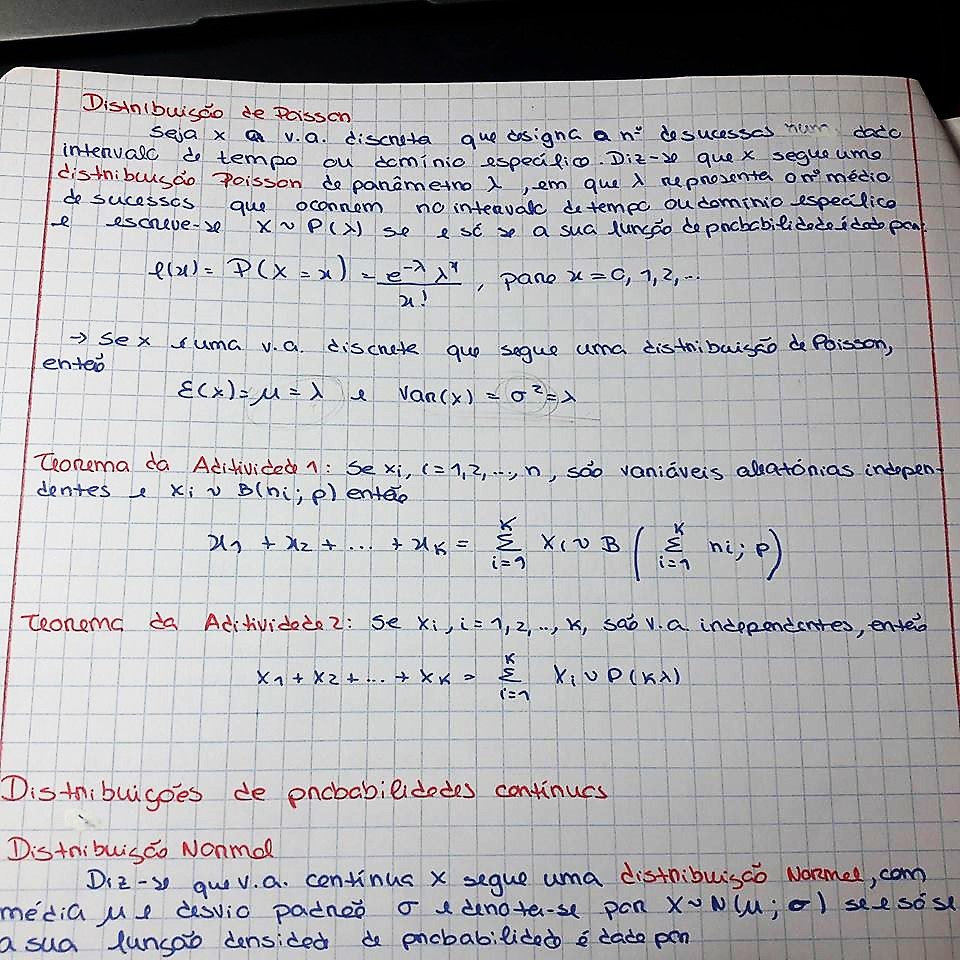 Distribuição de Poisson
Seja x a v.a. discreta que designa a nº de sucessos num dado
intervalo de tempo ou domínio específico. Diz-se que x segue uma
distribuição Poisson de parâmetro λ, em que λ representa o nº médio
de sucessos que ocorrem no intervalo de tempo ou domínio específico
e escreve-se X ~ P(λ) se e só se a sua função de probabilidade é dada por:
f(x) = P(X = x) = e^{-λ} λ^x / x! , para x = 0, 1, 2, ...
→ Se x é uma v.a. discreta que segue uma distribuição de Poisson,
então
E(x) = μ = λ e Var(x) = σ² = λ
Teorema da Aditividade 1: Se xi, i = 1, 2, ..., n, são variáveis aleatórias indepen-
dentes e Xi ~ B(ni; p) então
x1 + x2 + ... + xK = Σ_{i=1}^{K} Xi ~ B(Σ_{i=1}^{K} ni; p)
Teorema da Aditividade 2: Se xi, i = 1, 2, .., K, são v.a independentes, então
X1 + X2 + ... + XK = Σ_{i=1}^{K} Xi ~ P(Kλ)
Distribuições de probabilidades contínuas
Distribuição Normal
Diz-se que v.a. contínua X segue uma distribuição Normal, com
média μ e desvio padrão σ e denota-se por X ~ N(μ; σ) se e só se
a sua função densidad de probabilidad é dado por